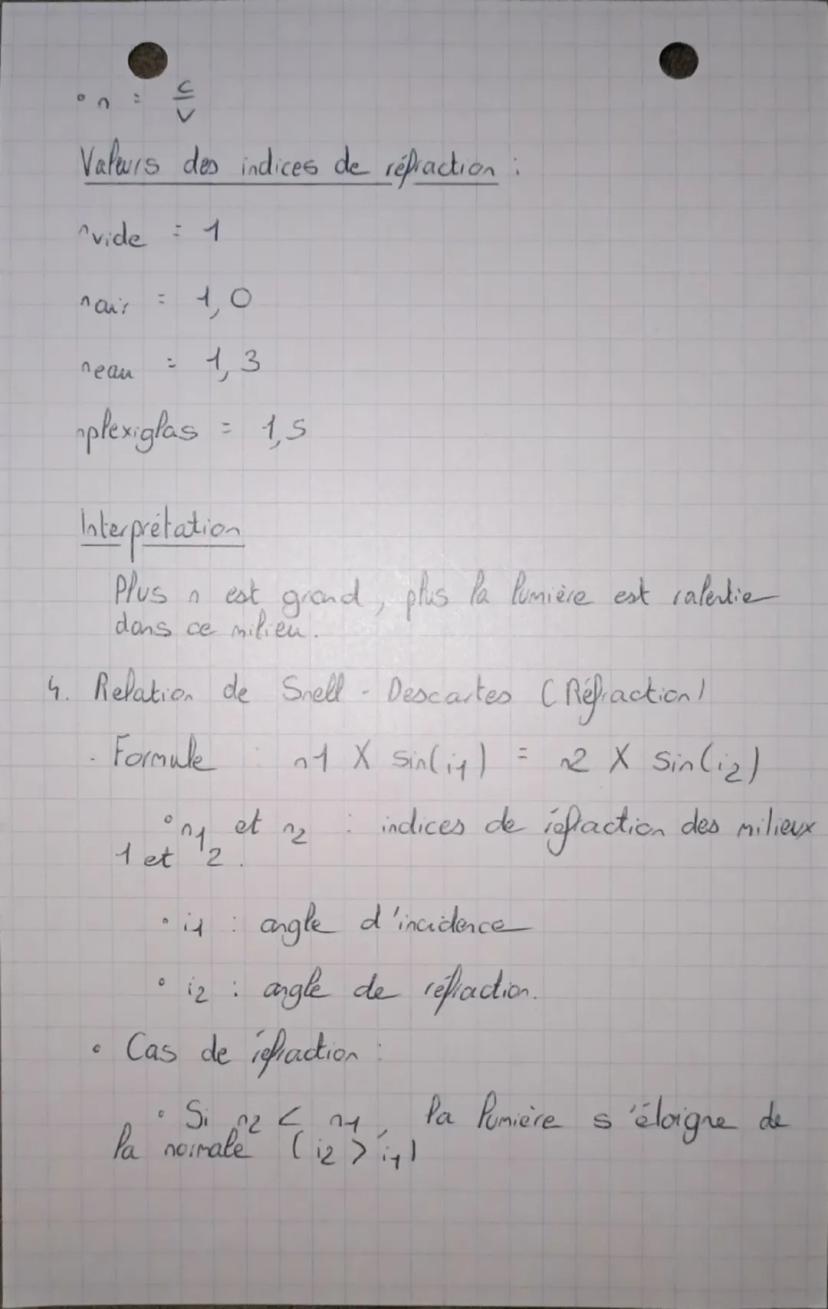 ° n = c/v
Valeurs des indices de réfraction :
nvide = 1
nair = 1,0
neau = 1,3
nplexiglas = 1,5
Interprétation
Plus n est grand, plus la lumière est ralentie
dans ce milieu.
4. Relation de Snell - Descartes (Réfraction)
- Formule : n1 X sin(i1) = n2 X sin(i2)
° n1 et n2 : indices de réfraction des milieux
1 et 2.
° i1 : angle d'incidence
° i2 : angle de réfraction.
• Cas de réfraction :
° Si n2 < n1, la lumière s'éloigne de
la normale (i2 > i1)